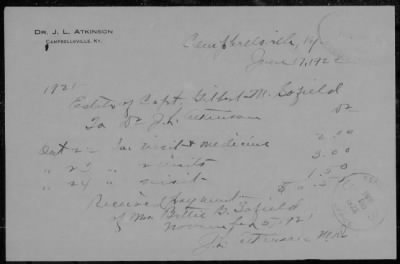 DR. J. L. ATKINSON
CAMPBELLSVILLE, KY.
Campbellsville, Ky
1921
Estate of Capt. Gilbert M.
To Dr J. L. Atkinson Dr
Oct 22 To visit & medicine 2.00
" 23 " 2 visits 3.00
" 24 " visit 1.50
Received payment
of Mrs Bettie B.
November 5, 1921
J L Atkinson M.D.